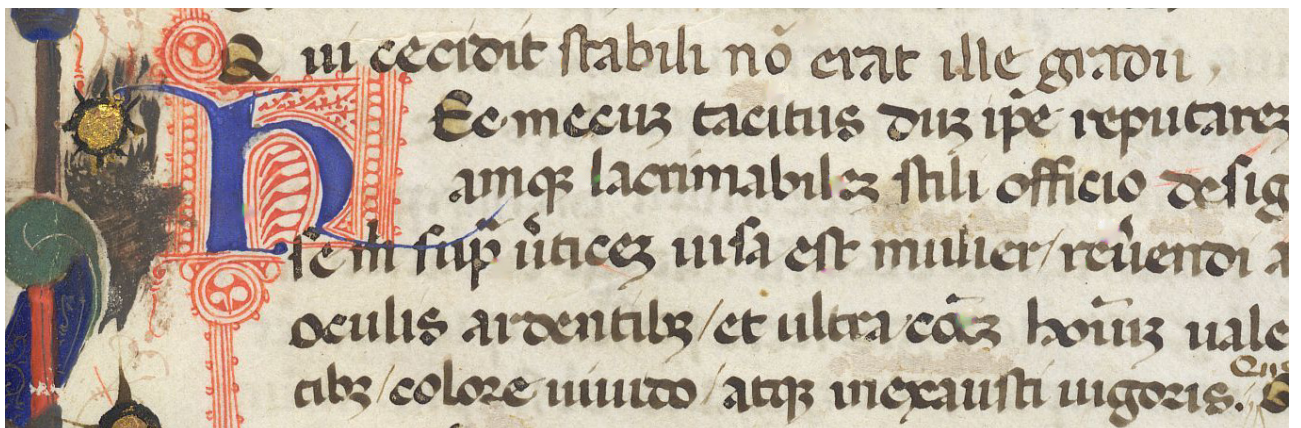 Qui cecidit stabili nō erat ille gradu,
hEc mecuꝫ tacitus duꝫ ip̄e reputareꝫ
amqꝫ lacrimabileꝫ stili officio desig
se m̄ sup̄ ůticeꝫ uisa est mulier / reůendi a
oculis ardentibꝫ / et ultra cōēꝫ hoīuꝫ uale
tibꝫ / colore uiuido / atqꝫ inexausti uigoris.